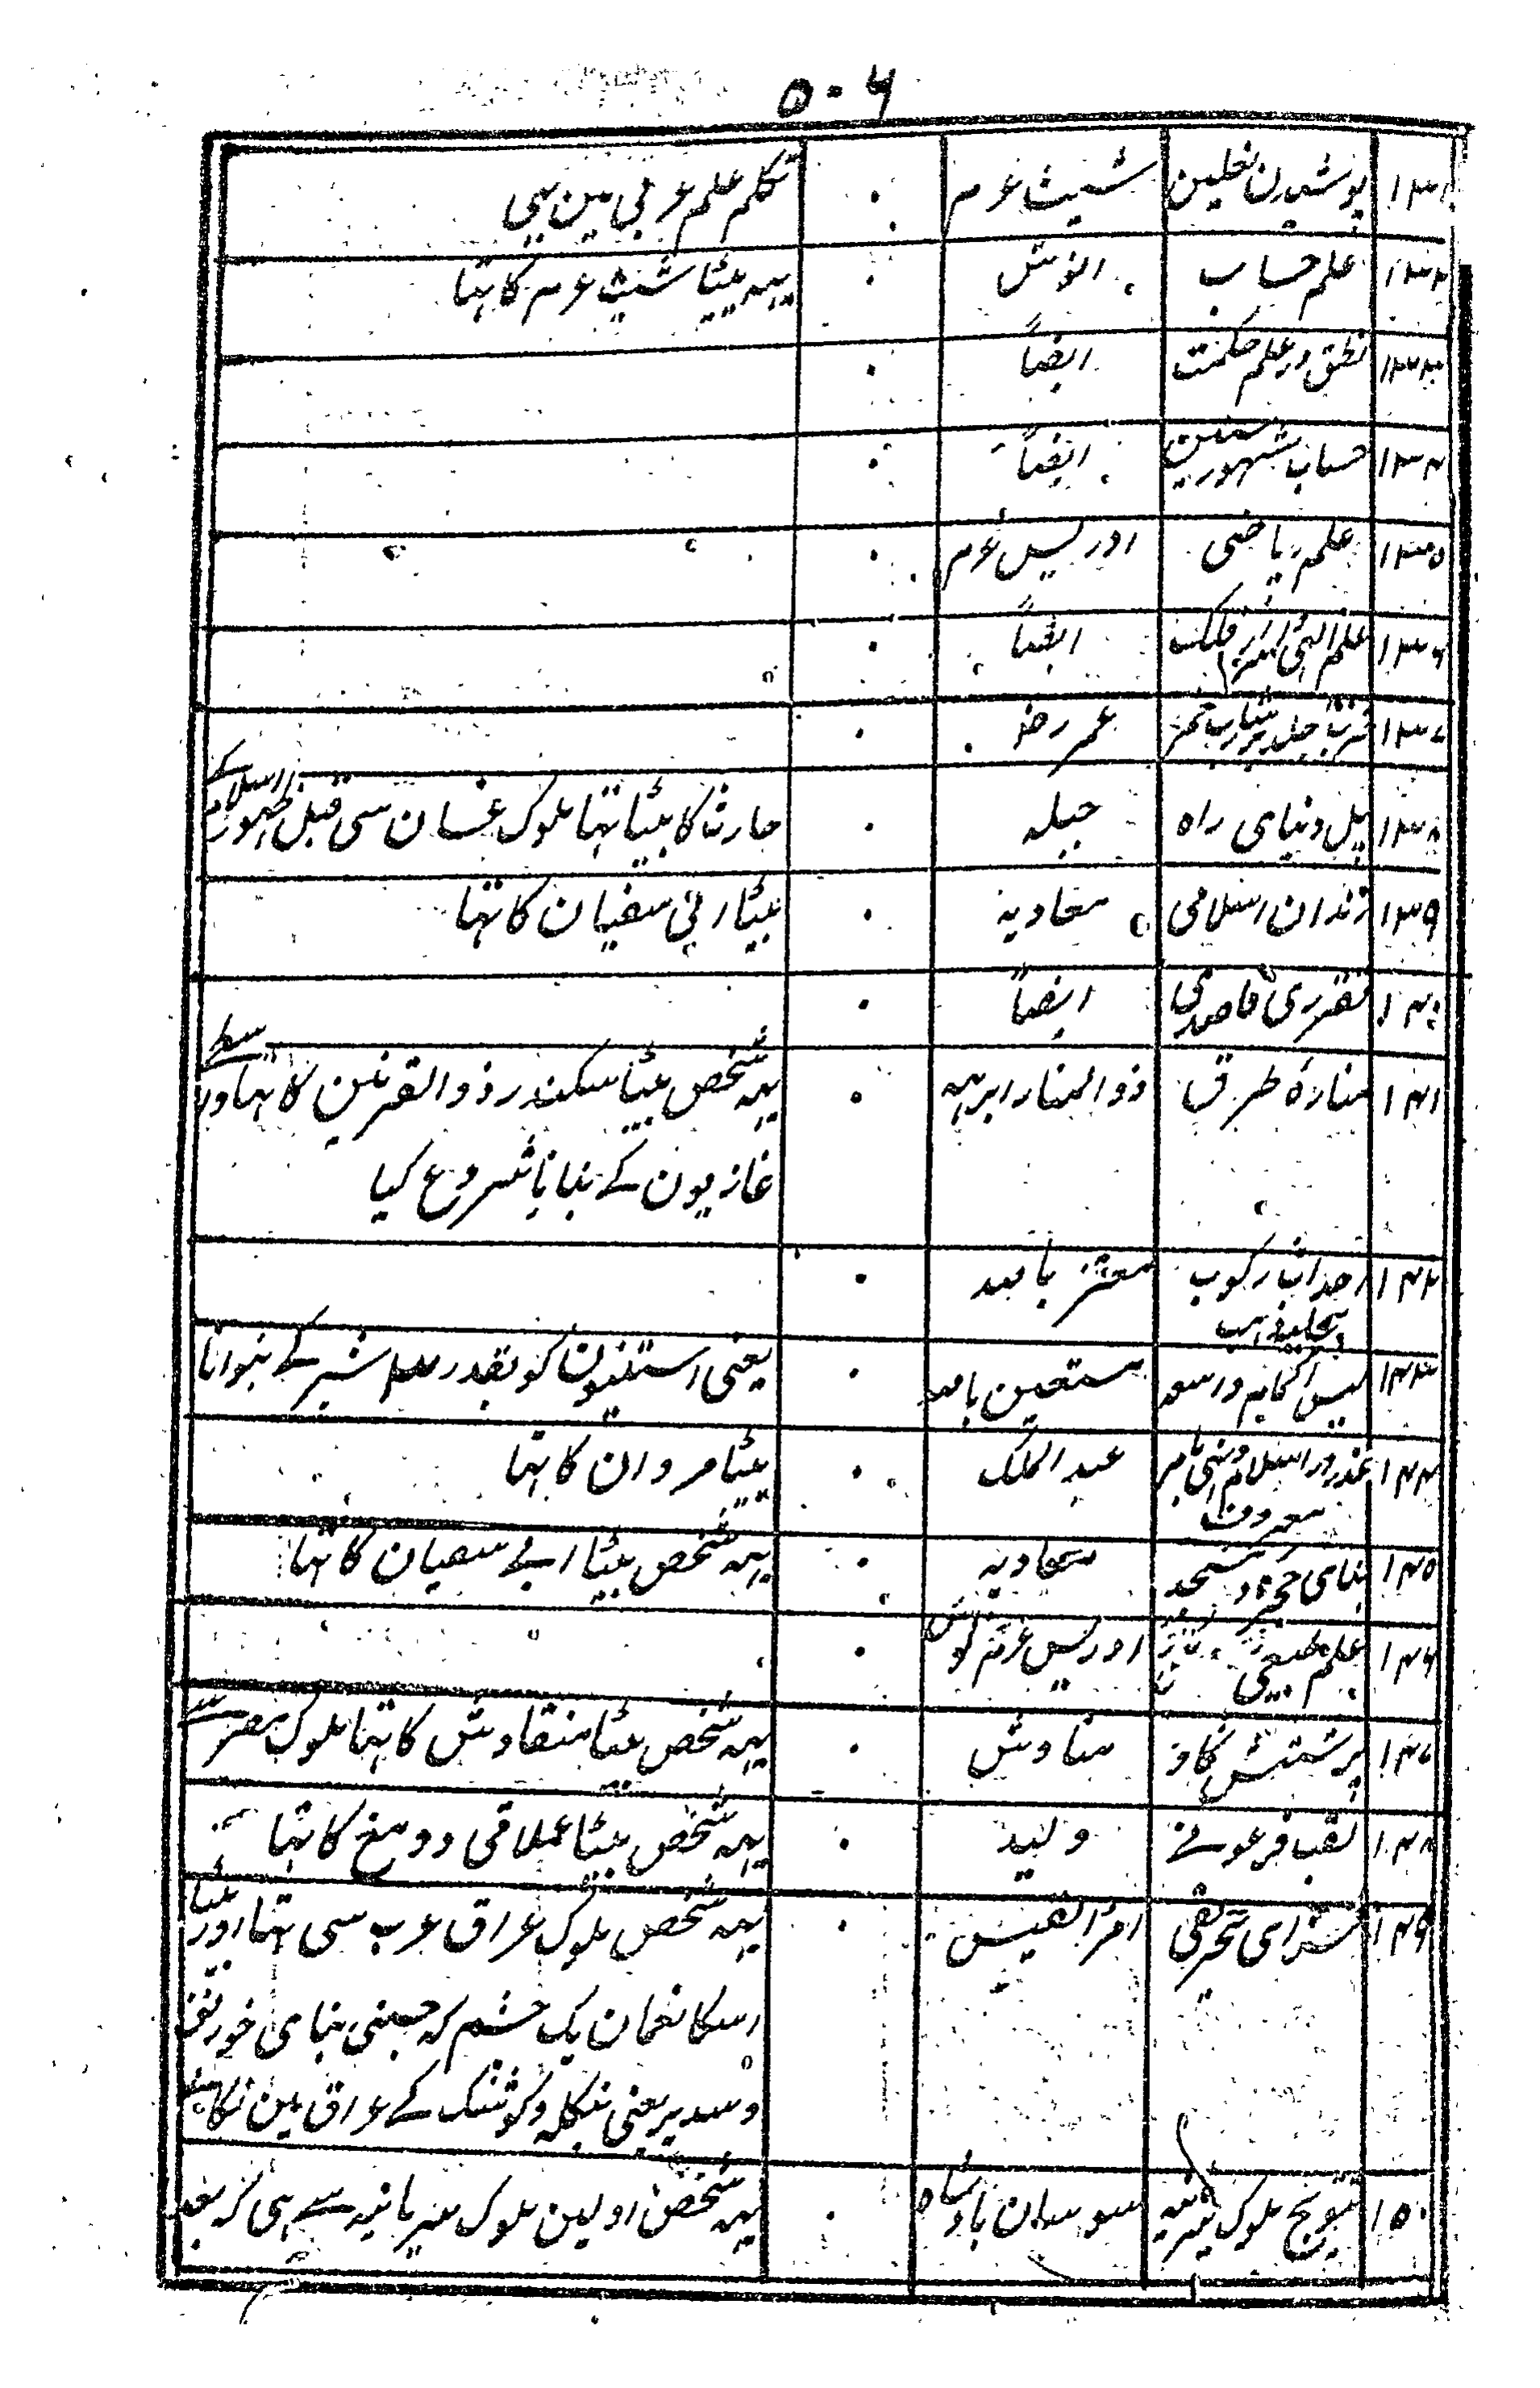 ۵۰۶
۱۳۱ پوشیدن نعلین شیث عرم ۰ تکلم علم عربی مین سی
۱۳۲ علم حساب انوش ۰ یہہ بیٹا شیث عرم کا تہا
۱۳۳ نطق در علم حکمت ایضاً ۰
۱۳۴ حساب شهور سنین ایضاً ۰
۱۳۵ علم ریاضی ادریس عرم ۰
۱۳۶ علم الہی فلک ایضاً ۰
۱۳۷ ضرب جلد شارب خمر عمر رضہ ۰
۱۳۸ میل و بنای راه جبلہ ۰ حارث کا بیٹا تہا ملوک غسان سی قبل ظہور اسلام کے
۱۳۹ زندان اسلامی معاویہ ۰ بیٹا ابی سفیان کا تہا
۱۴۰ مقرری قاصد کی ایضاً ۰
۱۴۱ منارۂ طرق ذو المنار ابرہہ ۰ یہہ شخص بیٹا سکندر ذو القرنین کا تہا واسطے
غازیون کے بنانا شروع کیا
۱۴۲ احداث رکوب معتز باللہ ۰
بحلیہ ذہب
۱۴۳ لبس اکمام واسعہ مستعین باللہ ۰ یعنی استینون کو بقدر ۳ شبر کے بنوانا
۱۴۴ غدر در اسلام و نہی بامر عبد الملک ۰ بیٹا مروان کا تہا
معروف
۱۴۵ بنای حجرہ در مسجد معاویہ ۰ یہہ شخص بیٹا ابی سفیان کا تہا
۱۴۶ علم طبیعی ادریس عرم ۰
۱۴۷ پرستش گاو مناوش ۰ یہہ شخص بیٹا منقاوش کا تہا ملوک مصر سے
۱۴۸ لقب فرعونے ولید ۰ یہہ شخص بیٹا عملاقی دومغ کا تہا
۱۴۹ سزای تحریقی امرٔ القیس ۰ یہہ شخص ملوک عراق عرب سی تہا اور بیٹا
اسکا نعمان یک چشم کہ جسنی بنای خورنق
وسدیر یعنی بنگلہ و کوشک کے عراق مین نکالی
۱۵۰ تتویج ملوک سریانیہ سوسان بادشاہ ۰ یہہ شخص اولین ملوک سریانیہ سے ہی کہ بعد